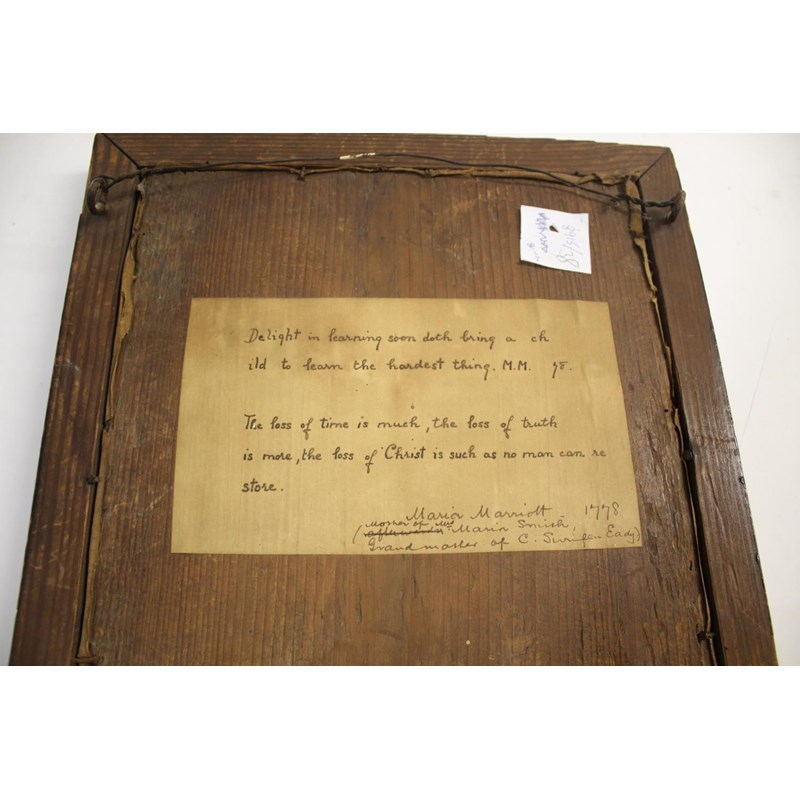 Delight in learning soon doth bring a ch
ild to learn the hardest thing. M.M. 78.
The loss of time is much, the loss of truth
is more, the loss of Christ is such as no man can re
store.
Maria Marriott - 1778
Mother of Mrs
(afterwards Maria Smith,
Grandmother of C. Swinfen Eady)